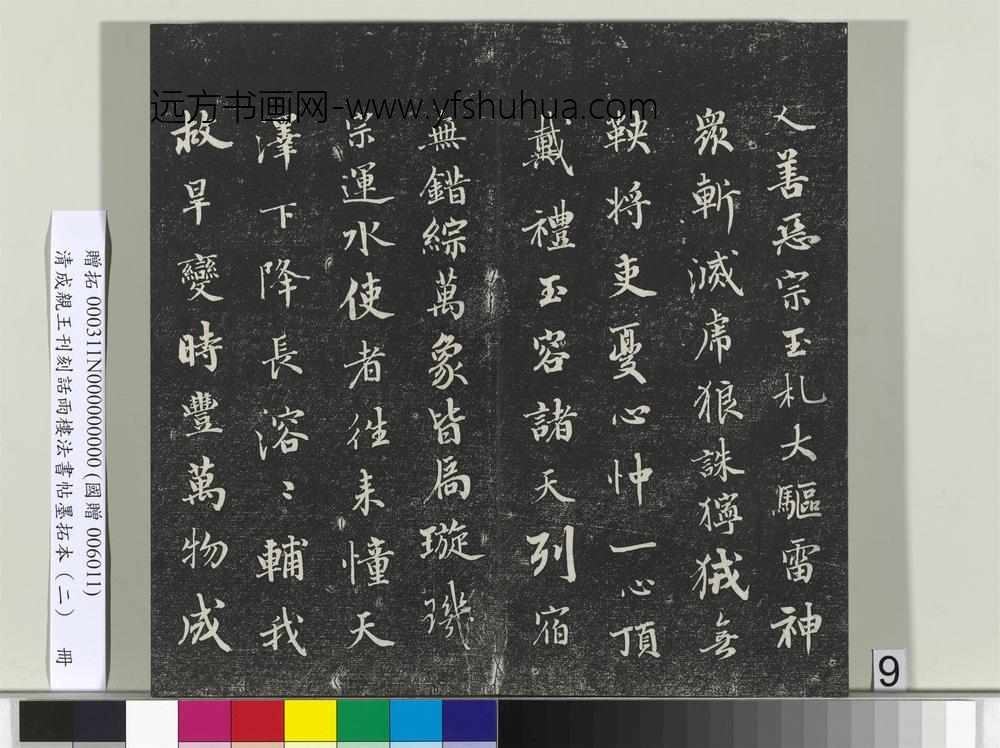 远方书画网-www.yfshuhua.com
人善惡宗玉札大驅雷神
眾斬滅虎狼誅獰狨無
鞅將吏憂心忡一心頂
戴禮玉容諸天列宿
無錯綜萬象皆扃璇璣
宗運水使者往來憧天
澤下降長溶〻輔我
旱變時豐萬物咸
贈拓 000311N000000000(國贈 006011)
清成親王刊刻話雨樓法書帖墨拓本(二) 冊
9